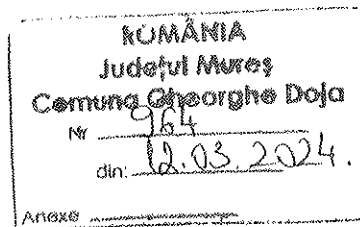 ROMÂNIA
Județul Mureș
Comuna Gheorghe Doja
Nr 964
din: 12.03.2024.
Anexe